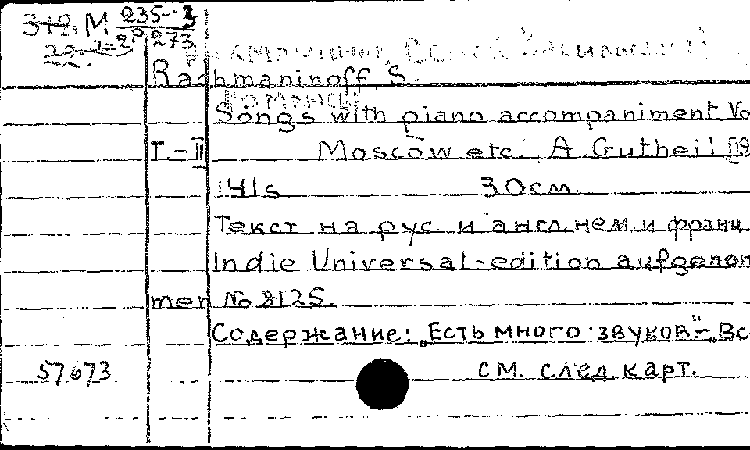 М 235-3
273
Rachmaninoff, S.
Songs with piano accompaniment Vo
I.-II Moscow etc., A Gutheil [19
141s 30см
Текст на рус и англ, нем, и франц
In die Universal-edition aufgenom
men No 8125.
Содержание: „Есть много звуков"-„Вс
57673 см. след карт.